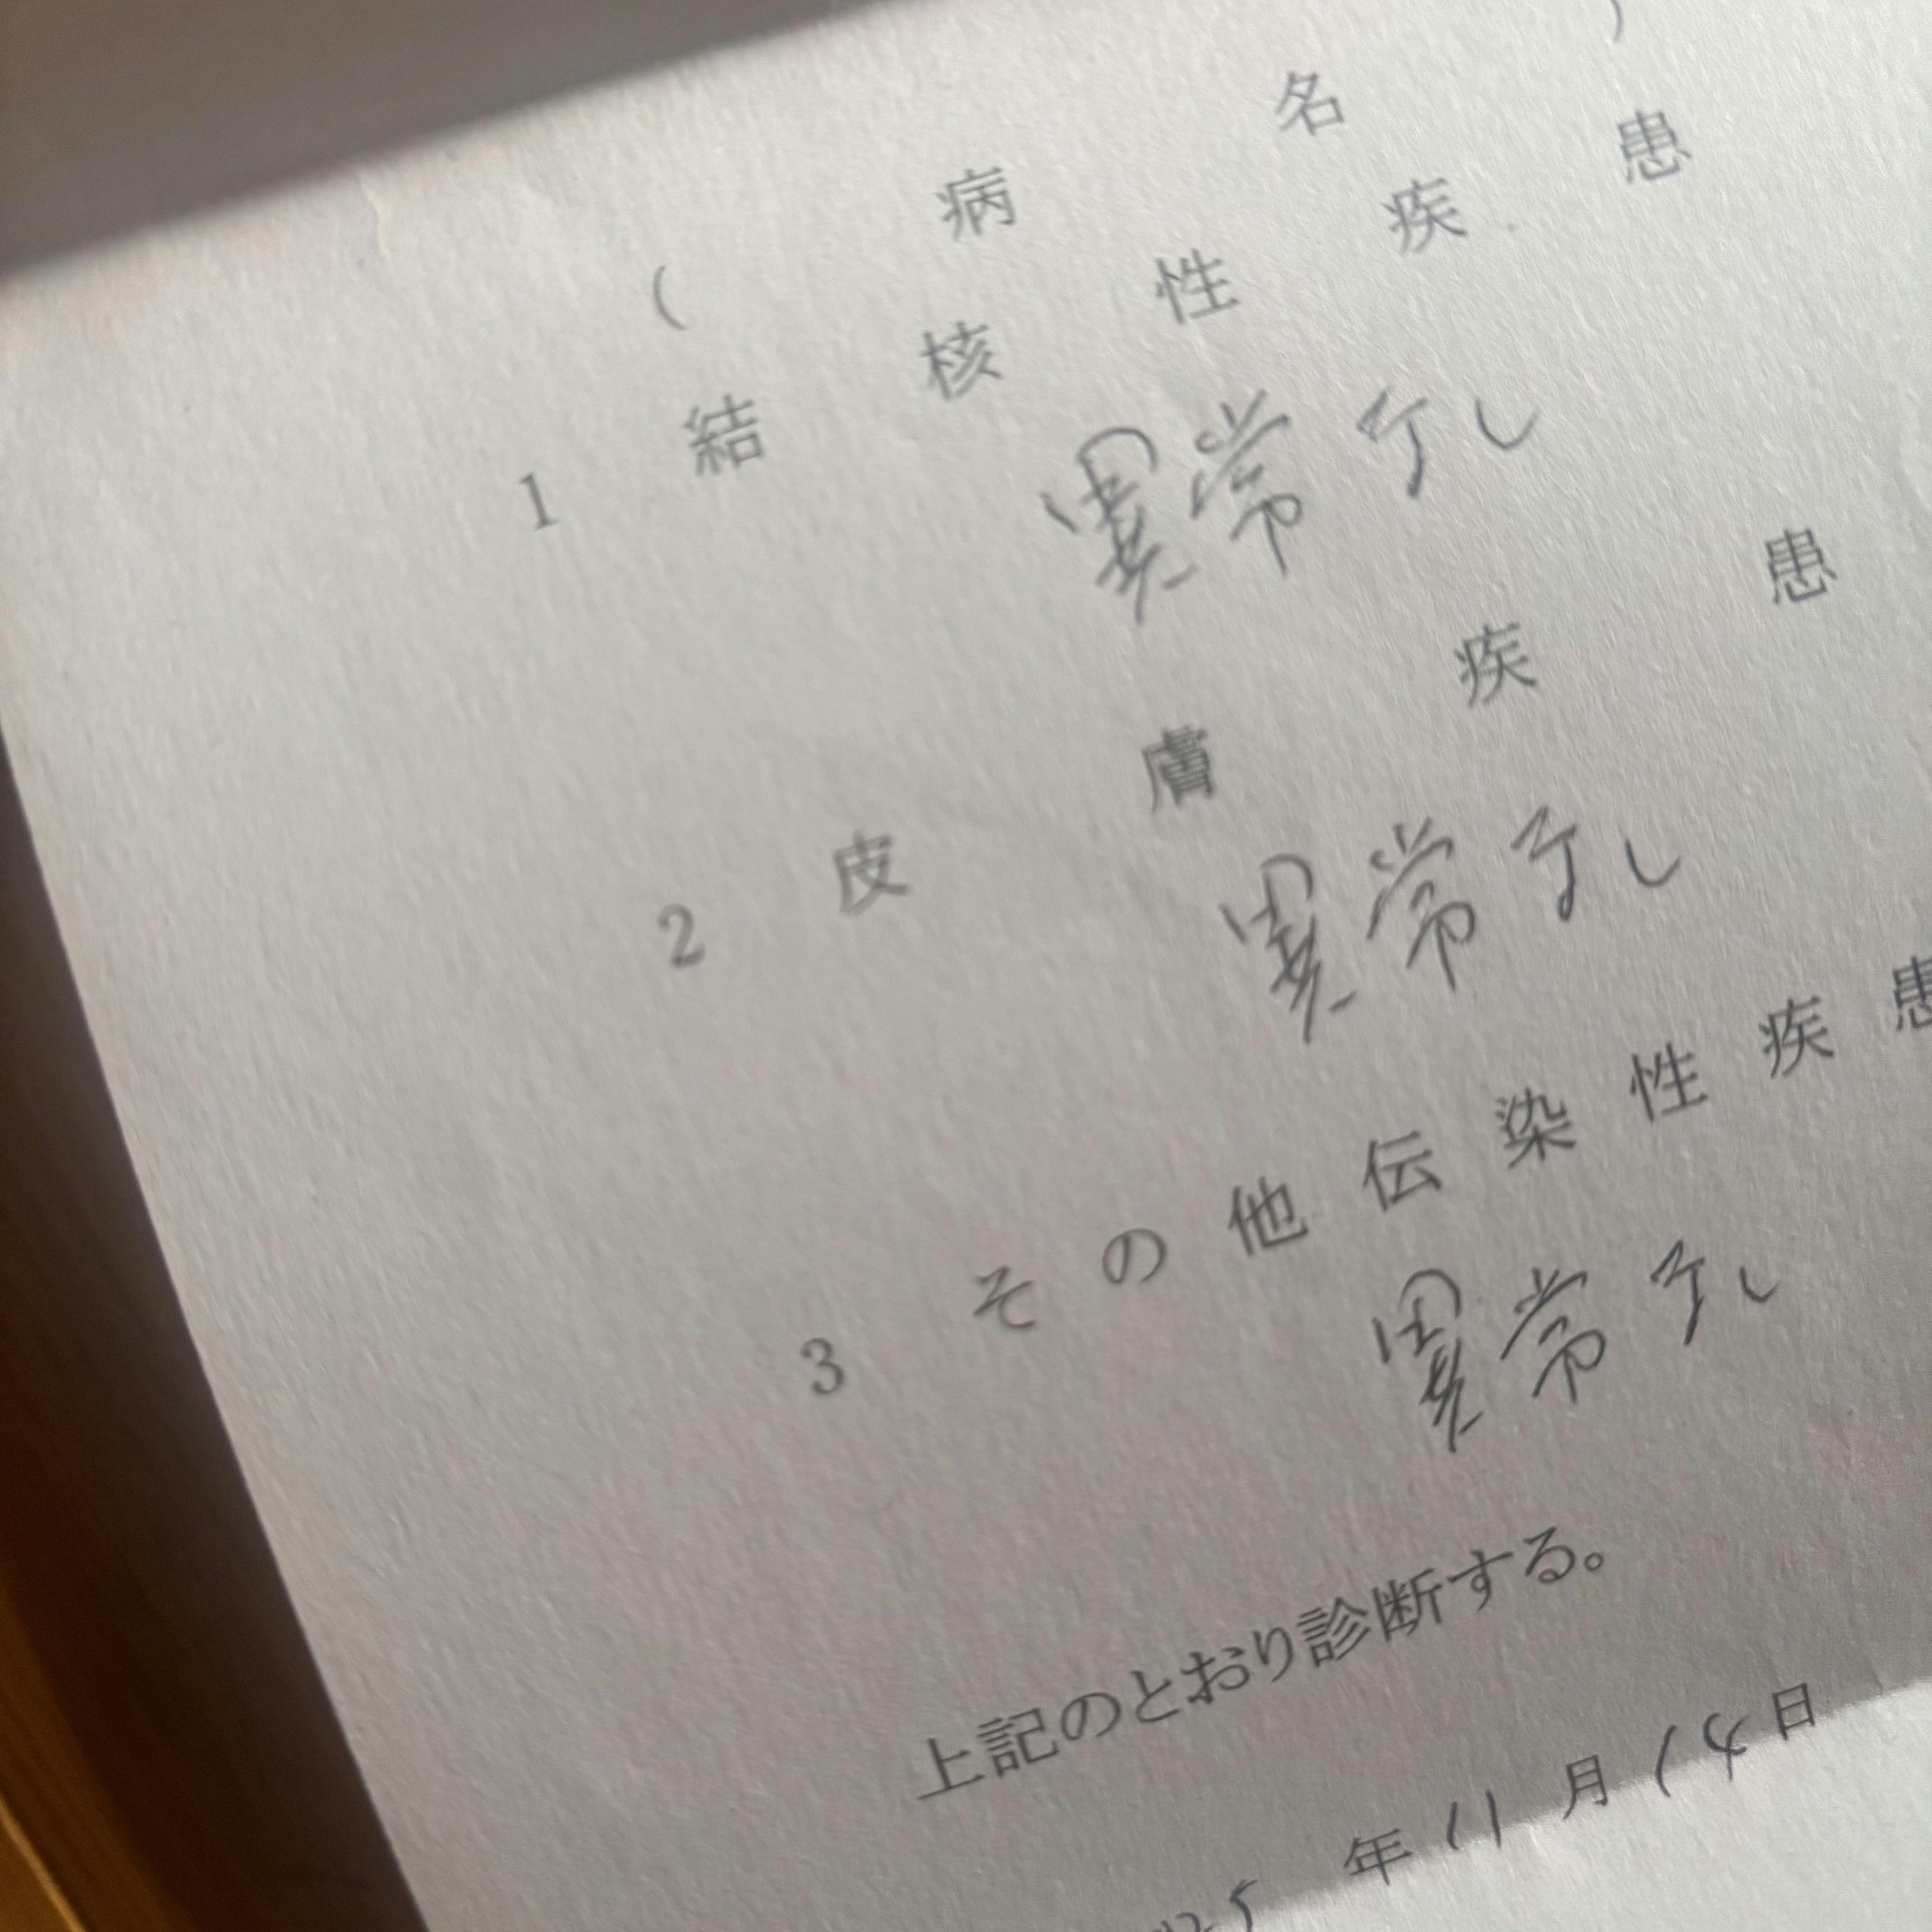 ( 病名 )
1 結核性疾患
異常なし
2 皮膚疾患
異常なし
3 その他伝染性疾患
異常なし
上記のとおり診断する。
25 年 11 月 14 日